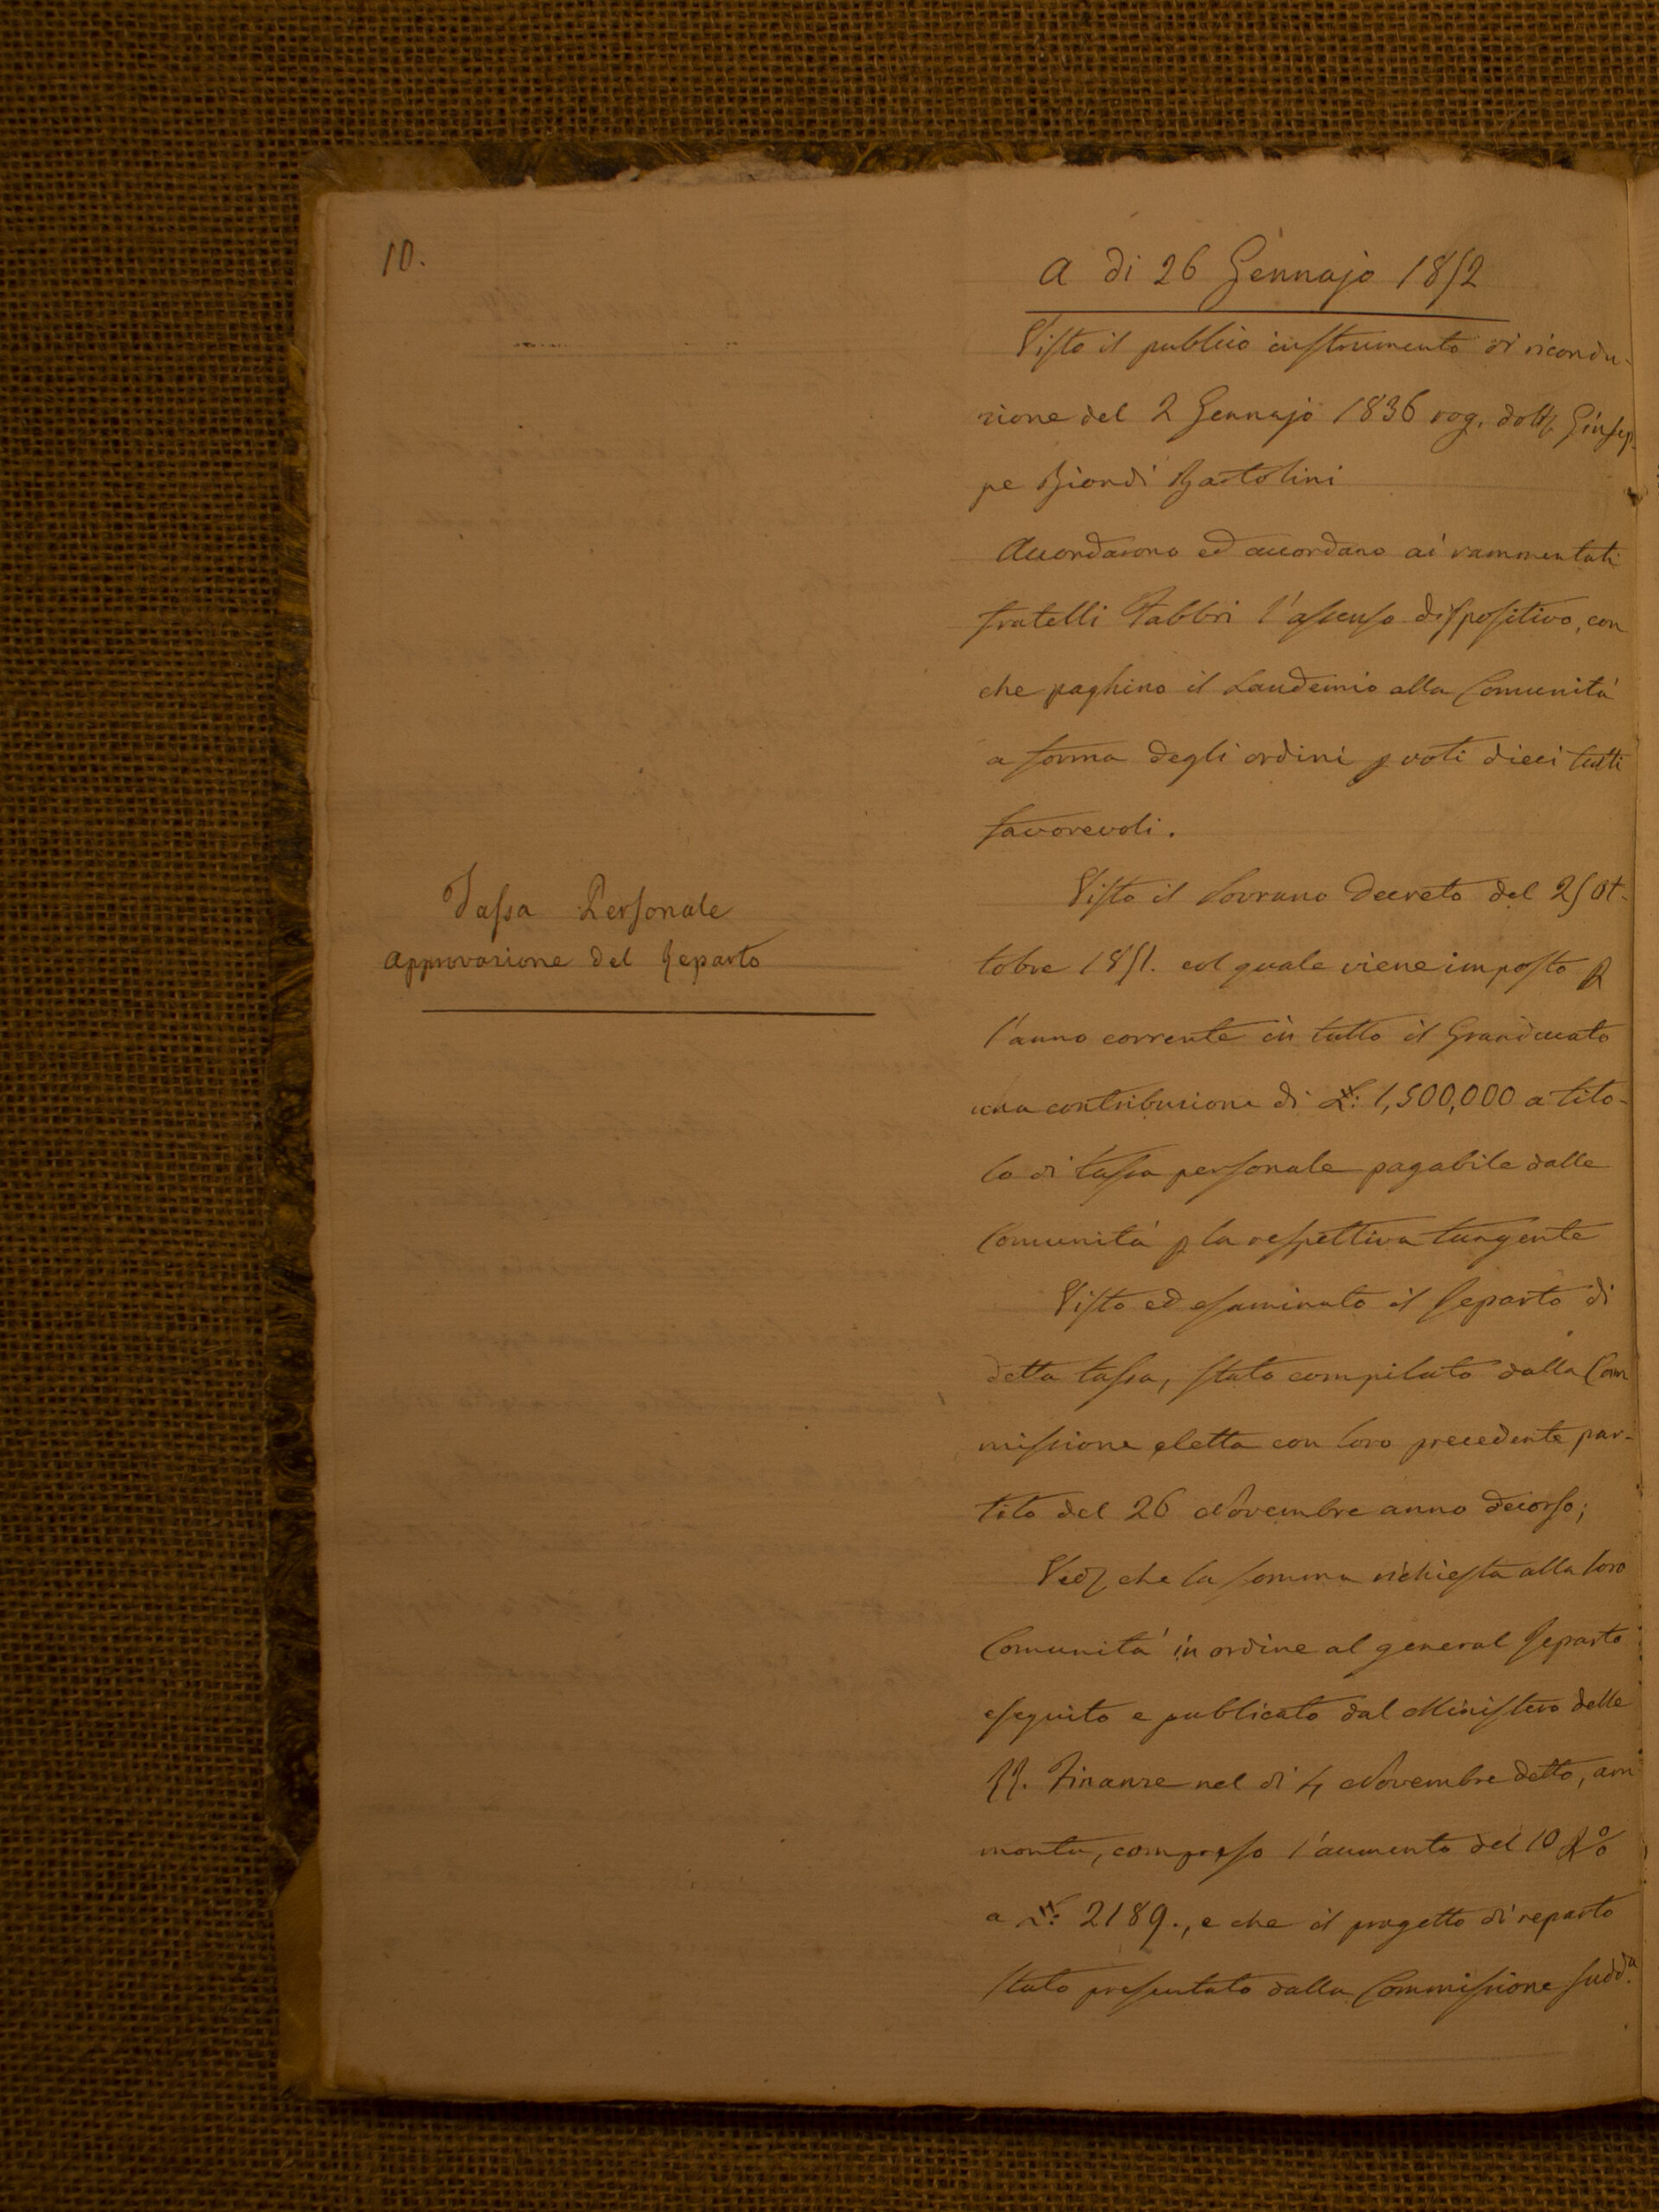 10.
A di 26 Gennajo 1852
Visto il publico instrumento di ricondu-
zione del 2 Gennajo 1836 rog. dott. Giusep-
pe Biondi Bartolini
Accordarono ed accordano ai rammentati
fratelli Fabbri l'assenso dispositivo, con
che paghino il Laudemio alla Comunità
a forma degli ordini p voti dieci tutti
favorevoli.
Tassa Personale
Approvazione del Reparto
Visto il Sovrano Decreto del 25 Ot-
tobre 1851. col quale viene imposto p
l'anno corrente in tutto il Granducato
una contribuzione di £: 1,500,000 a tito-
lo di tassa personale pagabile dalle
Comunità p la respettiva tangente
Visto ed esaminato il Reparto di
detta tassa, stato compilato dalla Com
missione eletta con loro precedente par-
tito del 26 Novembre anno decorso;
Ved. che la somma richiesta alla loro
Comunità in ordine al general Reparto
eseguito e publicato dal Ministero delle
RR. Finanze nel dì 4 Novembre detto, am
monta, compreso l'aumento del 10 p%
a £: 2189., e che il progetto di reparto
stato presentato dalla Commissione sudd.a